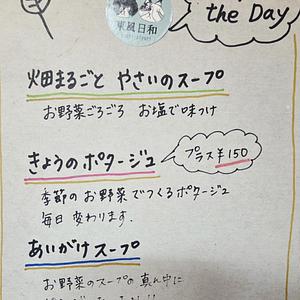 the Day
東風日和
畑まるごと やさいのスープ
お野菜ごろごろ お塩で味つけ
きょうのポタージュ
プラス¥150
季節のお野菜でつくるポタージュ
毎日変わります.
あいがけスープ
お野菜のスープの真ん中に